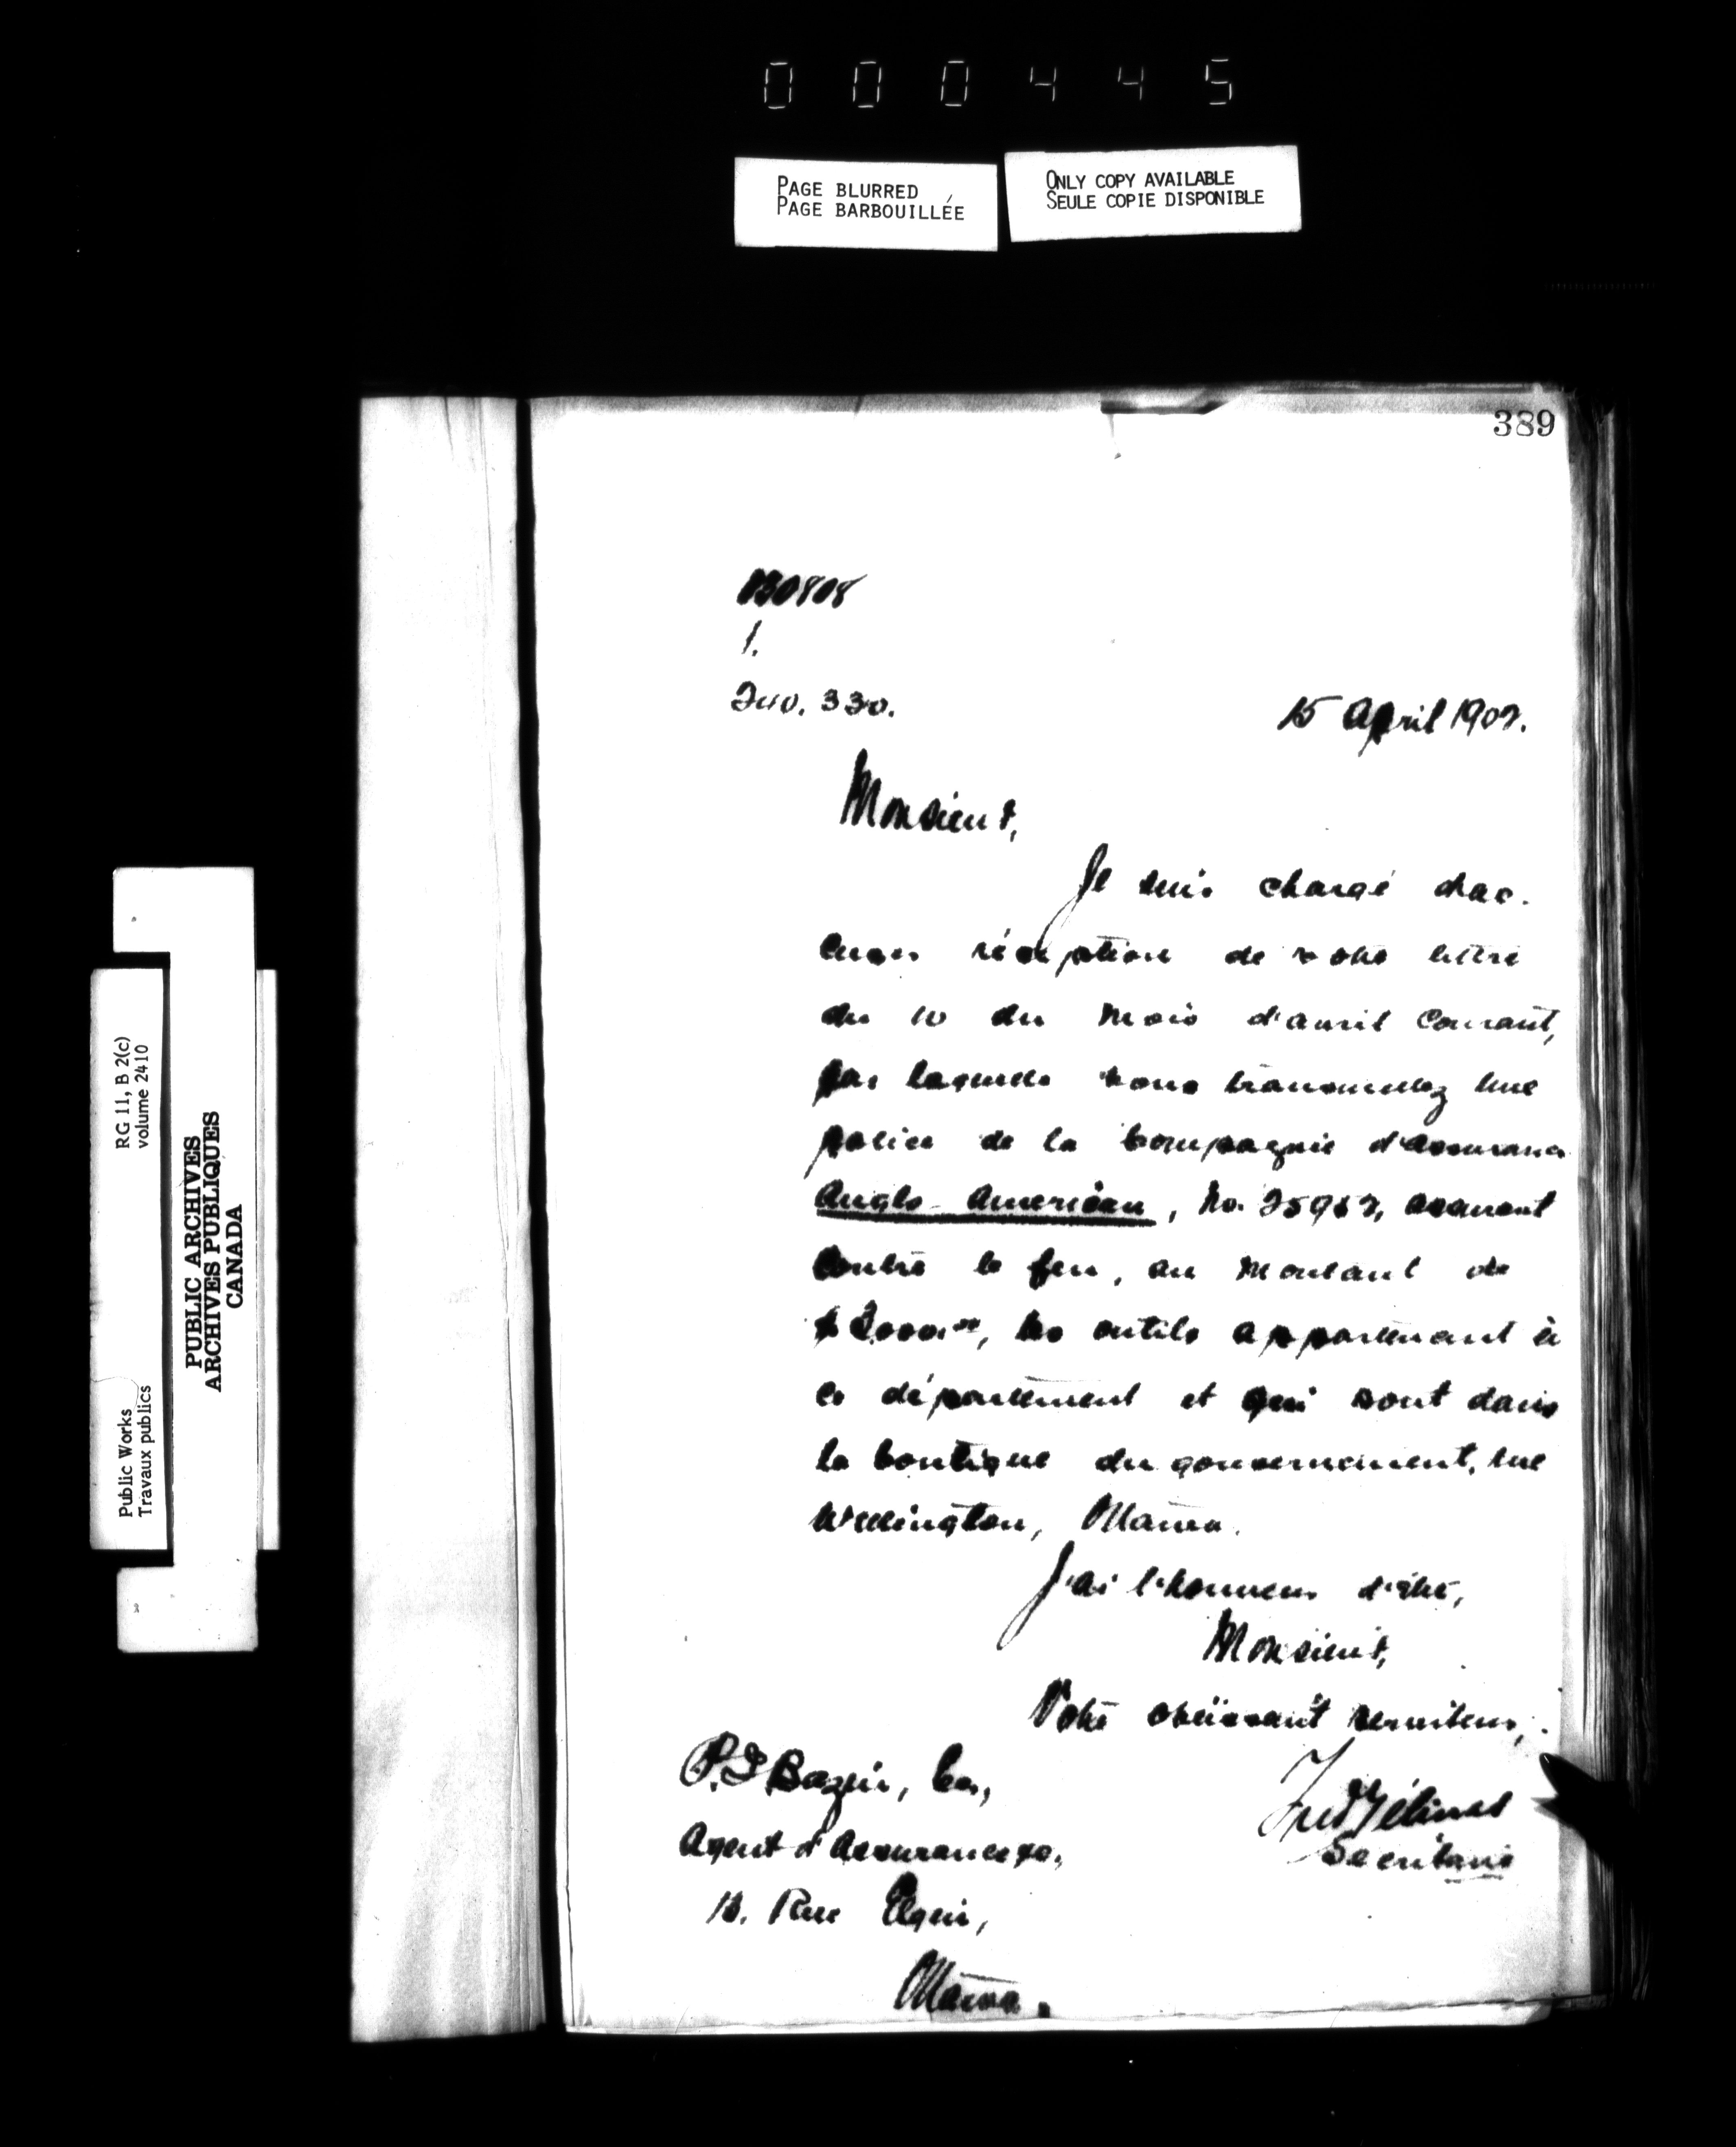 000445
PAGE BLURRED
PAGE BARBOUILLÉE
ONLY COPY AVAILABLE
SEULE COPIE DISPONIBLE
389
1.
330.
15 April 1902.
Monsieur,
Je suis chargé d'ac-
cuser réception de votre lettre
du 10 du mois d'avril courant,
par laquelle vous transmettez une
police de la Compagnie d'assurance
Anglo-American, No. assurant
contre le feu, au montant de
$2,000.00, les outils appartenant à
ce département et qui sont dans
la boutique du gouvernement, rue
Wellington, Ottawa.
J'ai l'honneur d'être,
Monsieur,
Votre obéissant serviteur,
Fred Gélinas
Secrétaire
Bazin,
Agent d'Assurance &c.,
Rue Elgin,
Ottawa.
Public Works
Travaux publics
RG 11, B 2(c)
volume 2410
PUBLIC ARCHIVES
ARCHIVES PUBLIQUES
CANADA